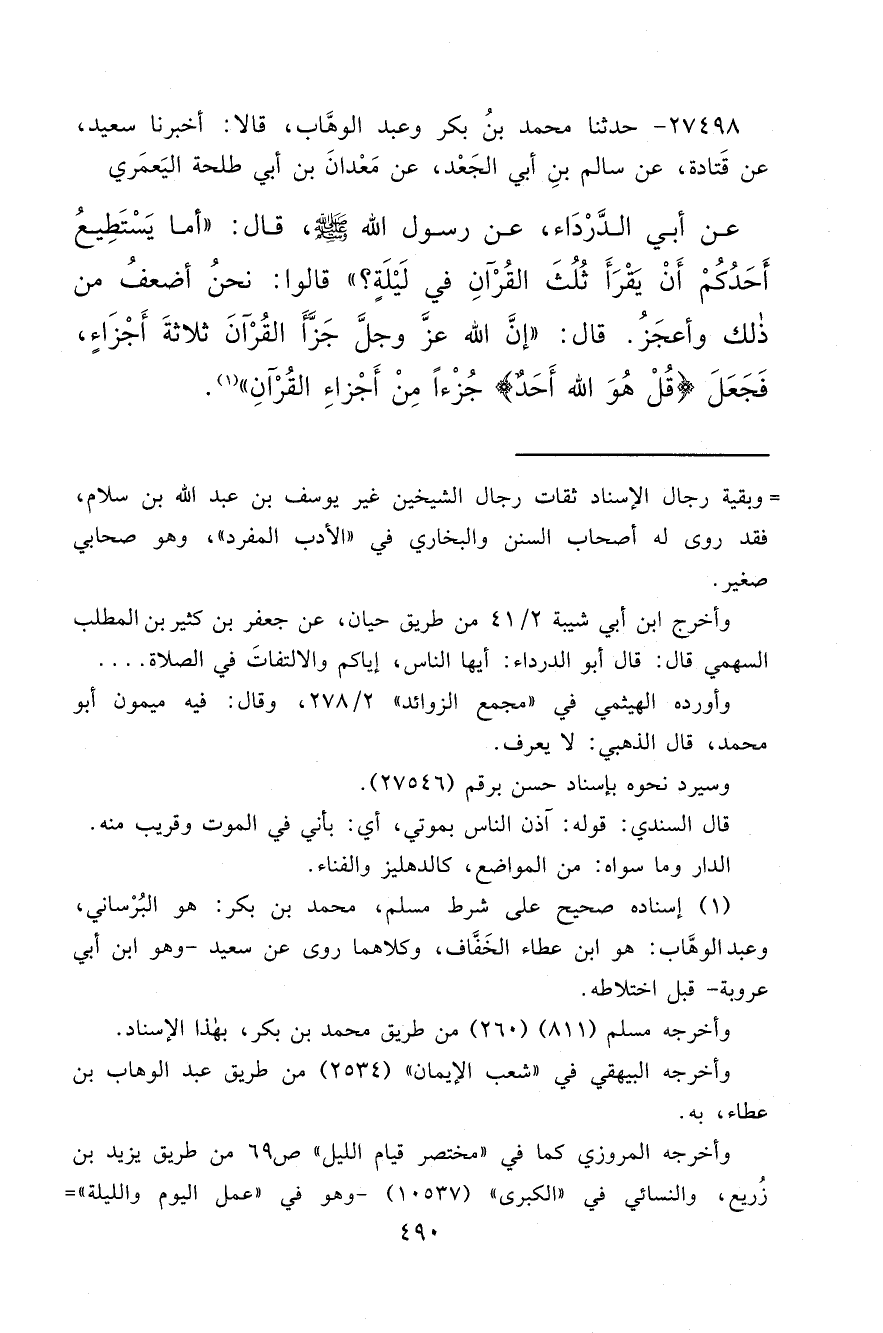 ٢٧٤٩٨- حدثنا محمد بنُ بكر وعبد الوهَّاب، قالا: أخبرنا سعيد،
عن قَتادة، عن سالم بنِ أبي الجَعْد، عن مَعْدانَ بن أبي طلحة اليَعمَري
عن أبي الدَّرْدَاء، عن رسول الله ﷺ، قال: «أما يَسْتَطِيعُ
أَحَدُكُمْ أَنْ يَقْرَأَ ثُلُثَ القُرْآنِ في لَيْلَةٍ؟» قالوا: نحنُ أضعفُ من
ذٰلك وأعجَزُ. قال: «إنَّ الله عزَّ وجلَّ جَزَّأَ القُرْآنَ ثلاثةَ أَجْزَاءٍ،
فَجَعَلَ ﴿قُلْ هُوَ الله أَحَدٌ﴾ جُزْءاً مِنْ أَجْزاءِ القُرْآنِ»(١).
= وبقية رجال الإسناد ثقات رجال الشيخين غير يوسف بن عبد الله بن سلام،
فقد روى له أصحاب السنن والبخاري في «الأدب المفرد»، وهو صحابي
صغير.
وأخرج ابن أبي شيبة ٤١/٢ من طريق حيان، عن جعفر بن كثير بن المطلب
السهمي قال: قال أبو الدرداء: أيها الناس، إياكم والالتفاتَ في الصلاة....
وأورده الهيثمي في «مجمع الزوائد» ٢٧٨/٢، وقال: فيه ميمون أبو
محمد، قال الذهبي: لا يعرف.
وسيرد نحوه بإسناد حسن برقم (٢٧٥٤٦).
قال السندي: قوله: آذن الناس بموتي، أي: بأني في الموت وقريب منه.
الدار وما سواه: من المواضع، كالدهليز والفناء.
(١) إسناده صحيح على شرط مسلم، محمد بن بكر: هو البُرْساني،
وعبد الوهَّاب: هو ابن عطاء الخَفَّاف، وكلاهما روى عن سعيد -وهو ابن أبي
عروبة- قبل اختلاطه.
وأخرجه مسلم (٨١١) (٢٦٠) من طريق محمد بن بكر، بهٰذا الإسناد.
وأخرجه البيهقي في «شعب الإيمان» (٢٥٣٤) من طريق عبد الوهاب بن
عطاء، به.
وأخرجه المروزي كما في «مختصر قيام الليل» ص٦٩ من طريق يزيد بن
زُريع، والنسائي في «الكبرى» (١٠٥٣٧) -وهو في «عمل اليوم والليلة»=
٤٩٠